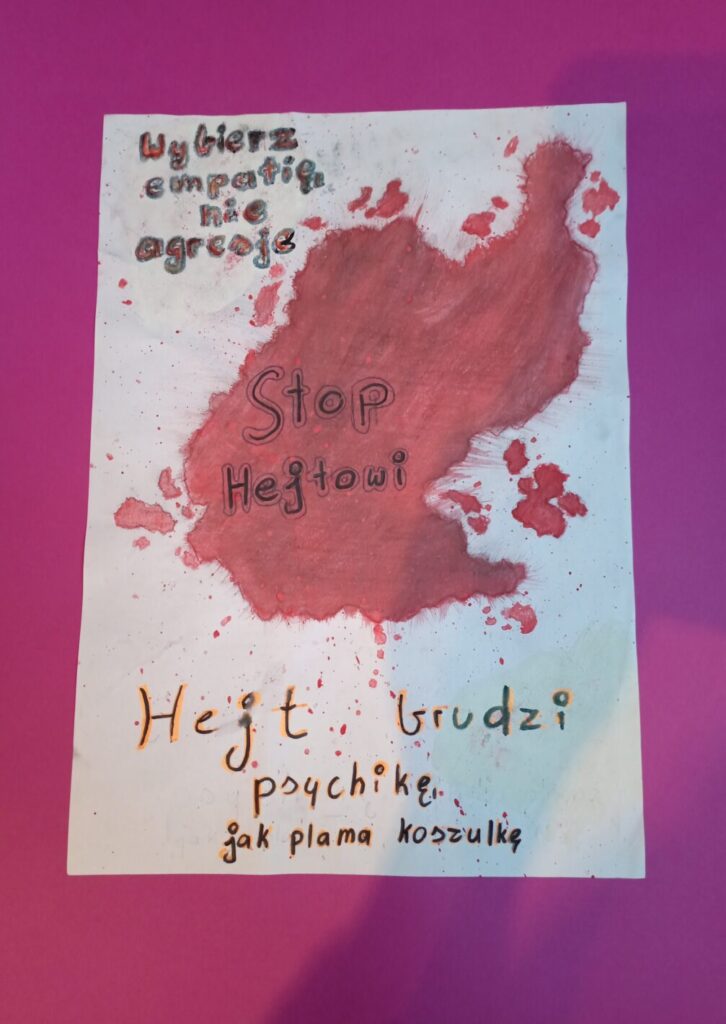 Wybierz
empatię,
nie
agresję
Stop
Hejtowi
Hejt brudzi
psychikę,
jak plama koszulkę